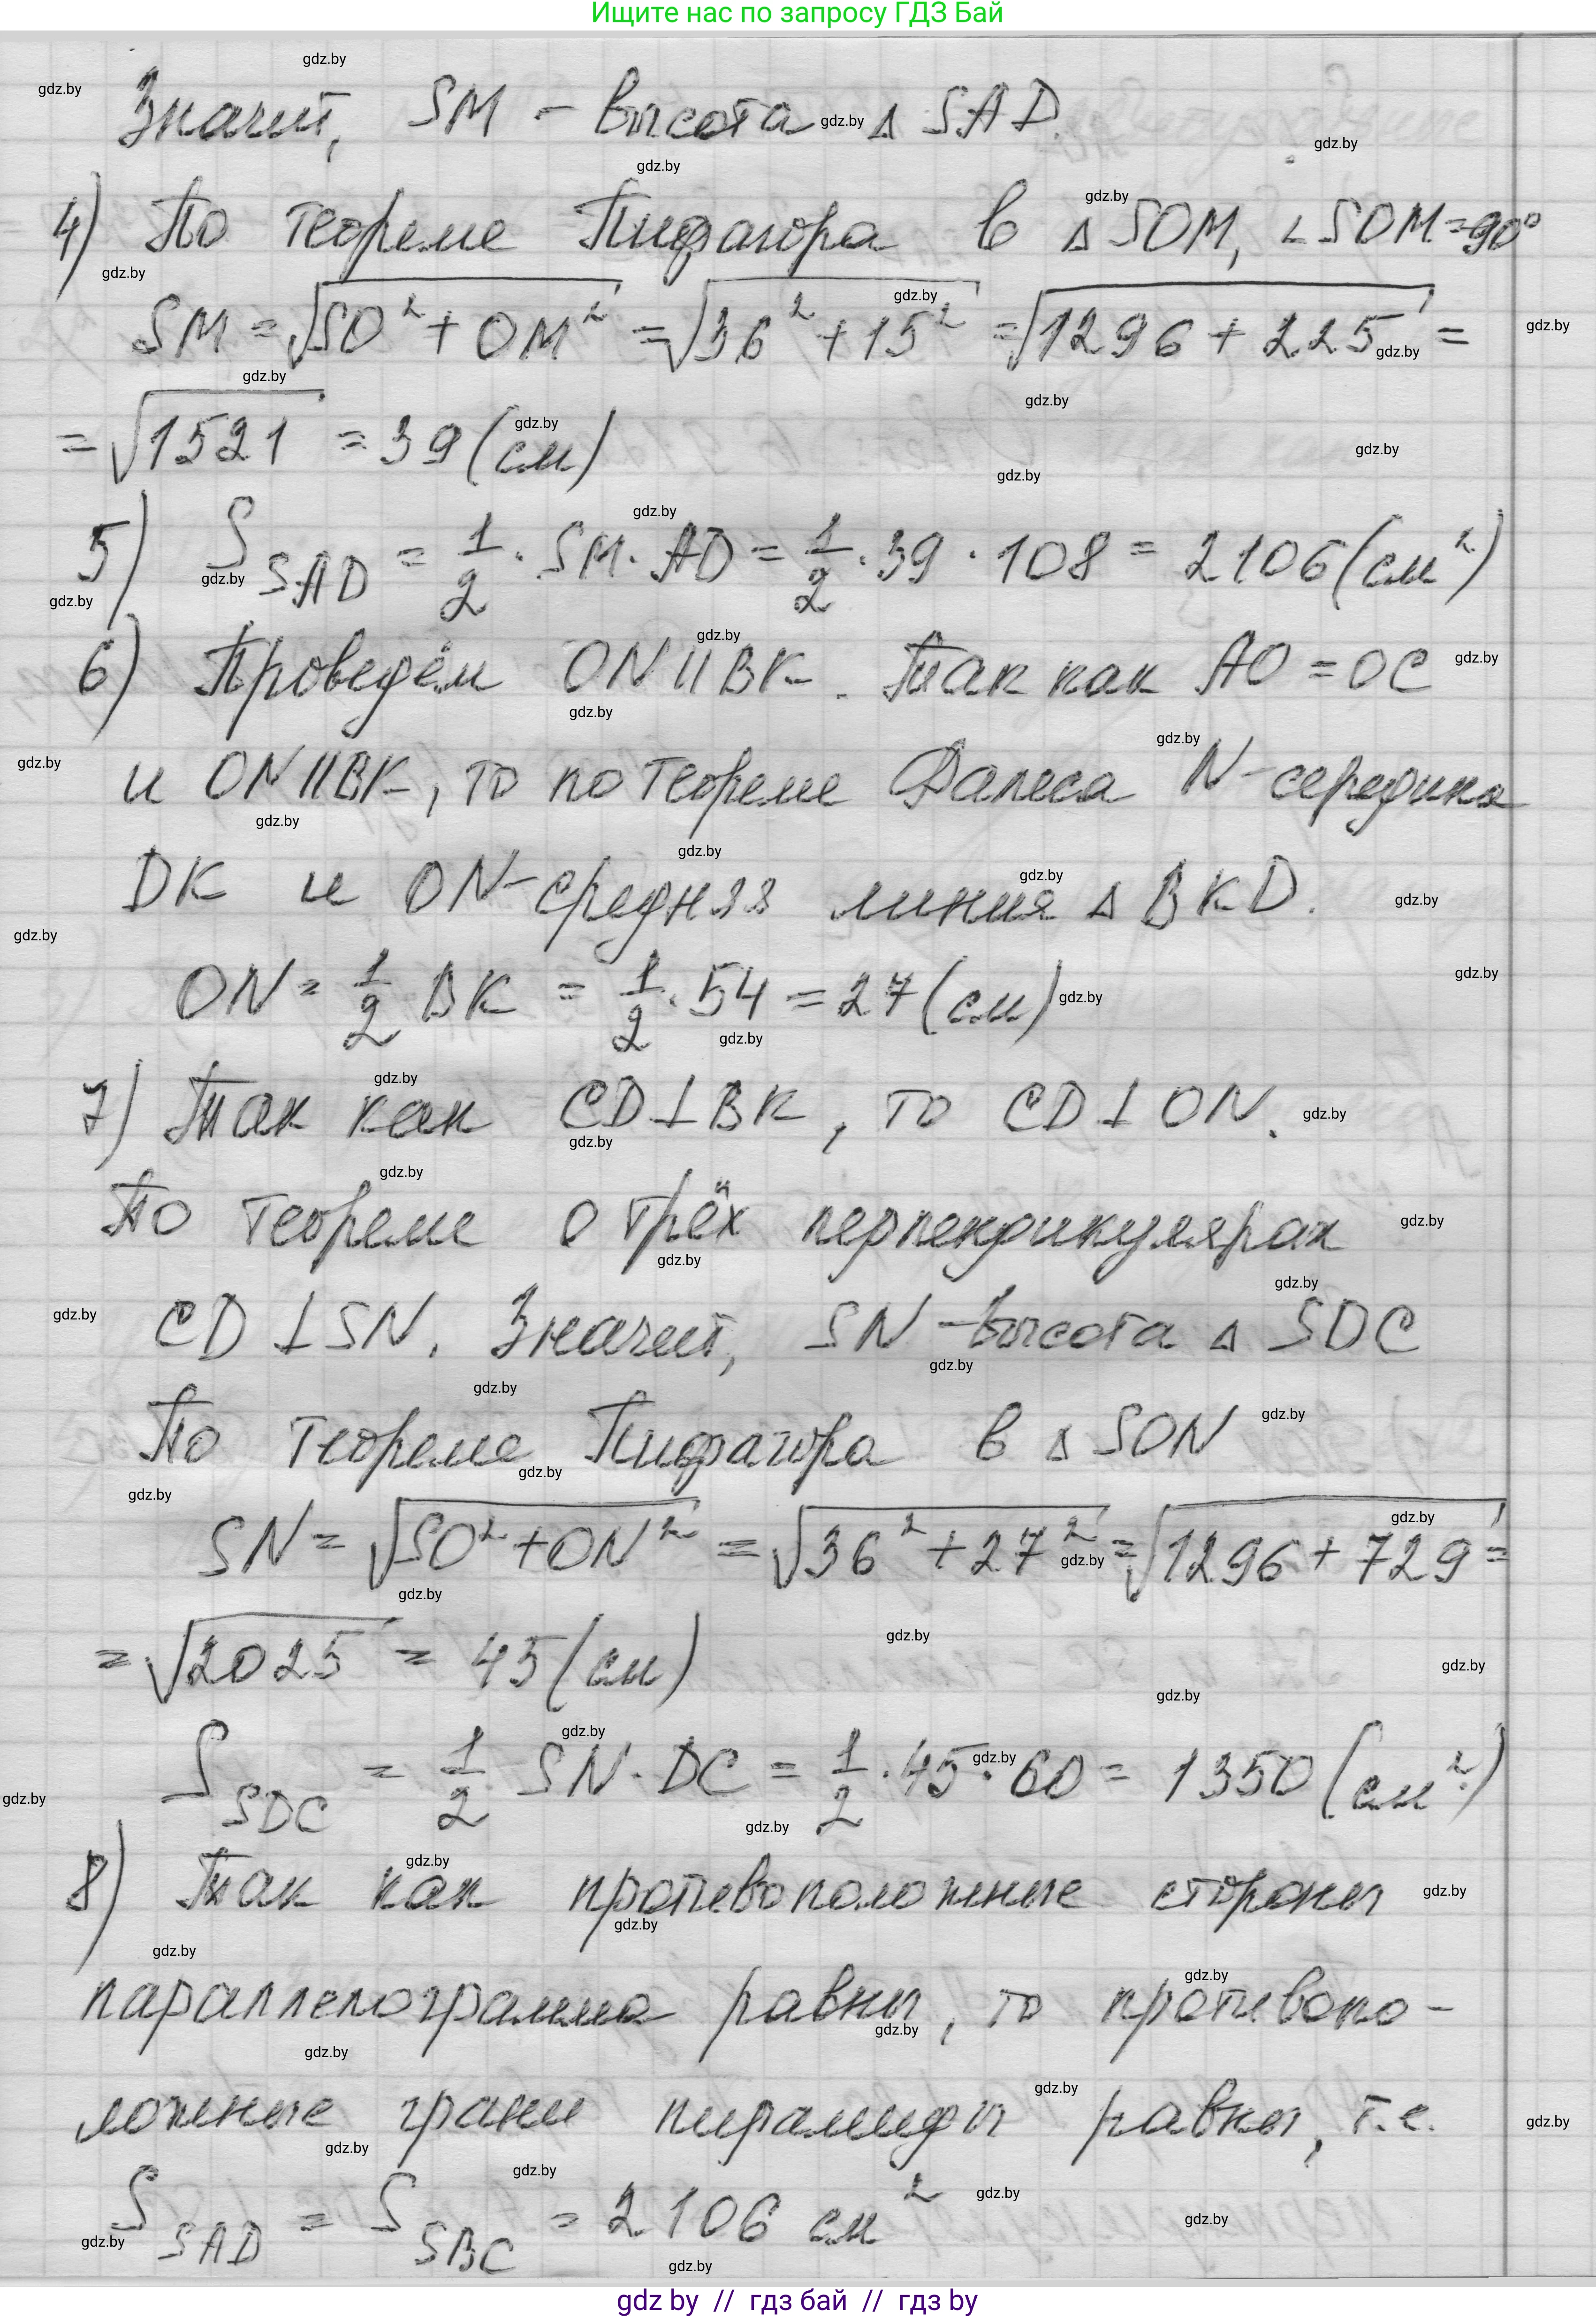 Ищите нас по запросу ГДЗ Бай
Значит, SM - высота Δ SAD.
4) По теореме Пифагора в Δ SOM, ∠SOM=90°
SM = √(SO² + OM²) = √(36² + 15²) = √(1296 + 225) =
= √1521 = 39 (см)
5) S_SAD = 1/2 · SM · AD = 1/2 · 39 · 108 = 2106 (см²)
6) Проведём ON || BK. Так как AO = OC
и ON || BK, то по теореме Фалеса N - середина
DK и ON - средняя линия Δ BKD.
ON = 1/2 BK = 1/2 · 54 = 27 (см)
7) Так как CD ⊥ BK, то CD ⊥ ON.
По теореме о трёх перпендикулярах
CD ⊥ SN. Значит, SN - высота Δ SDC
По теореме Пифагора в Δ SON
SN = √(SO² + ON²) = √(36² + 27²) = √(1296 + 729) =
= √2025 = 45 (см)
S_SDC = 1/2 SN · DC = 1/2 · 45 · 60 = 1350 (см²)
8) Так как противоположные стороны
параллелограмма равны, то противопо-
ложные грани пирамиды равны, т.е.
S_SAD = S_SBC = 2106 см²
gdz by // гдз бай // гдз by